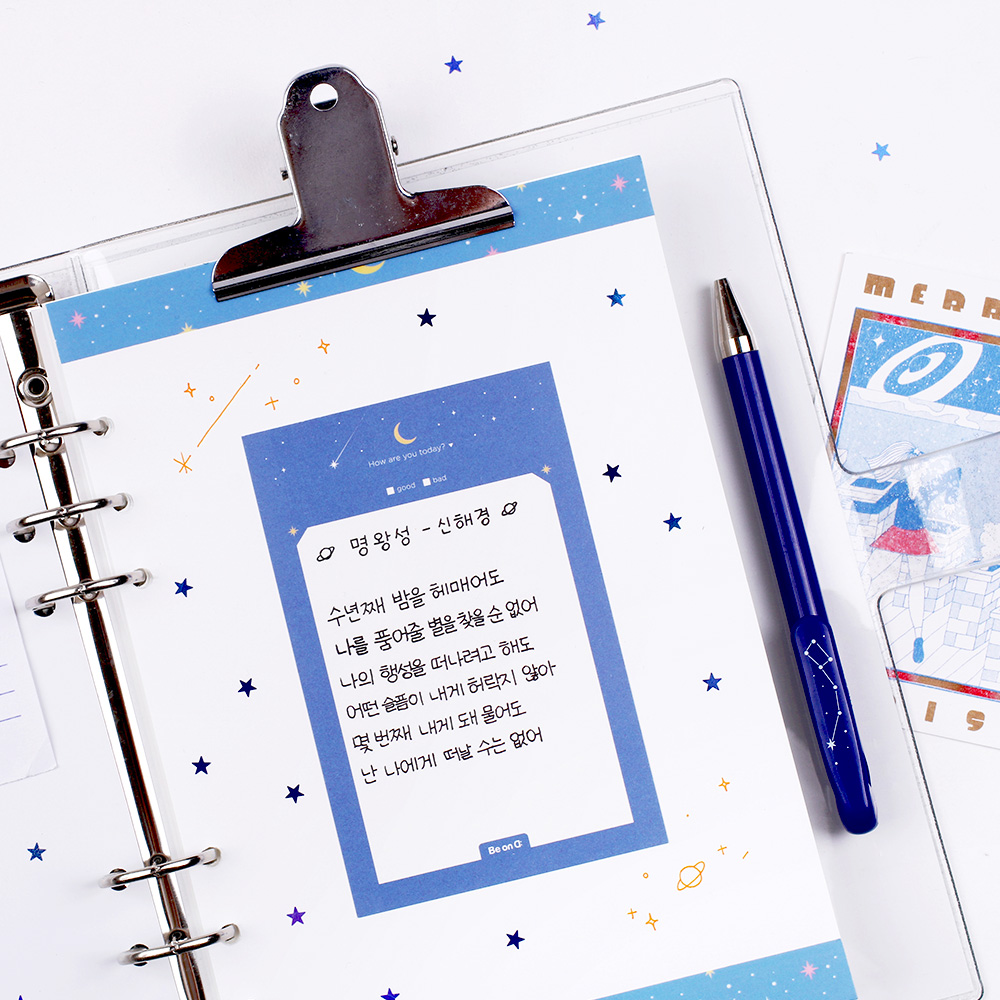 MERR
How are you today? ♥
good bad
명왕성 - 신해경
수년째 밤을 헤매어도
나를 품어줄 별을 찾을 순 없어
나의 행성을 떠나려고 해도
어떤 슬픔이 내게 허락지 않아
몇 번째 내게 돼 물어도
난 나에게 떠날 수는 없어
Be on D
IS